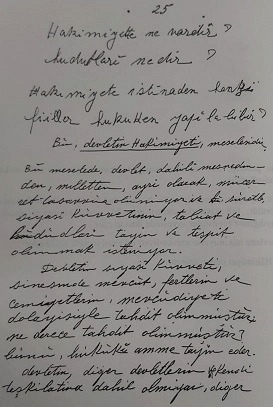 25
Hakimiyette ne vardır?
hudutları nedir?
Hakimiyete istinaden hangi
fiiller hukuken yapılabilir?
Bu, devletin Hakimiyeti, meselesidir.
Bu meselede, devlet, dahili
den, milletten, ayrı olarak, mücer
ret tasavvur olunuyor ve bu suretle,
siyasi kuvvetinin, tabiat ve
hududları tayin ve tespit
olunmak isteniyor.
Devletin siyasi kuvveti,
sinesinde mevcut, fertlerin ve
cemiyetlerin, mevcudiyeti
dolayısiyle tahdit olunmuştur;
ne derece tahdit olunmuştur?
bunu, hukuku amme tayin eder.
devletin, diğer devletlerin
teşkilatına dahil olmıyan, diğer